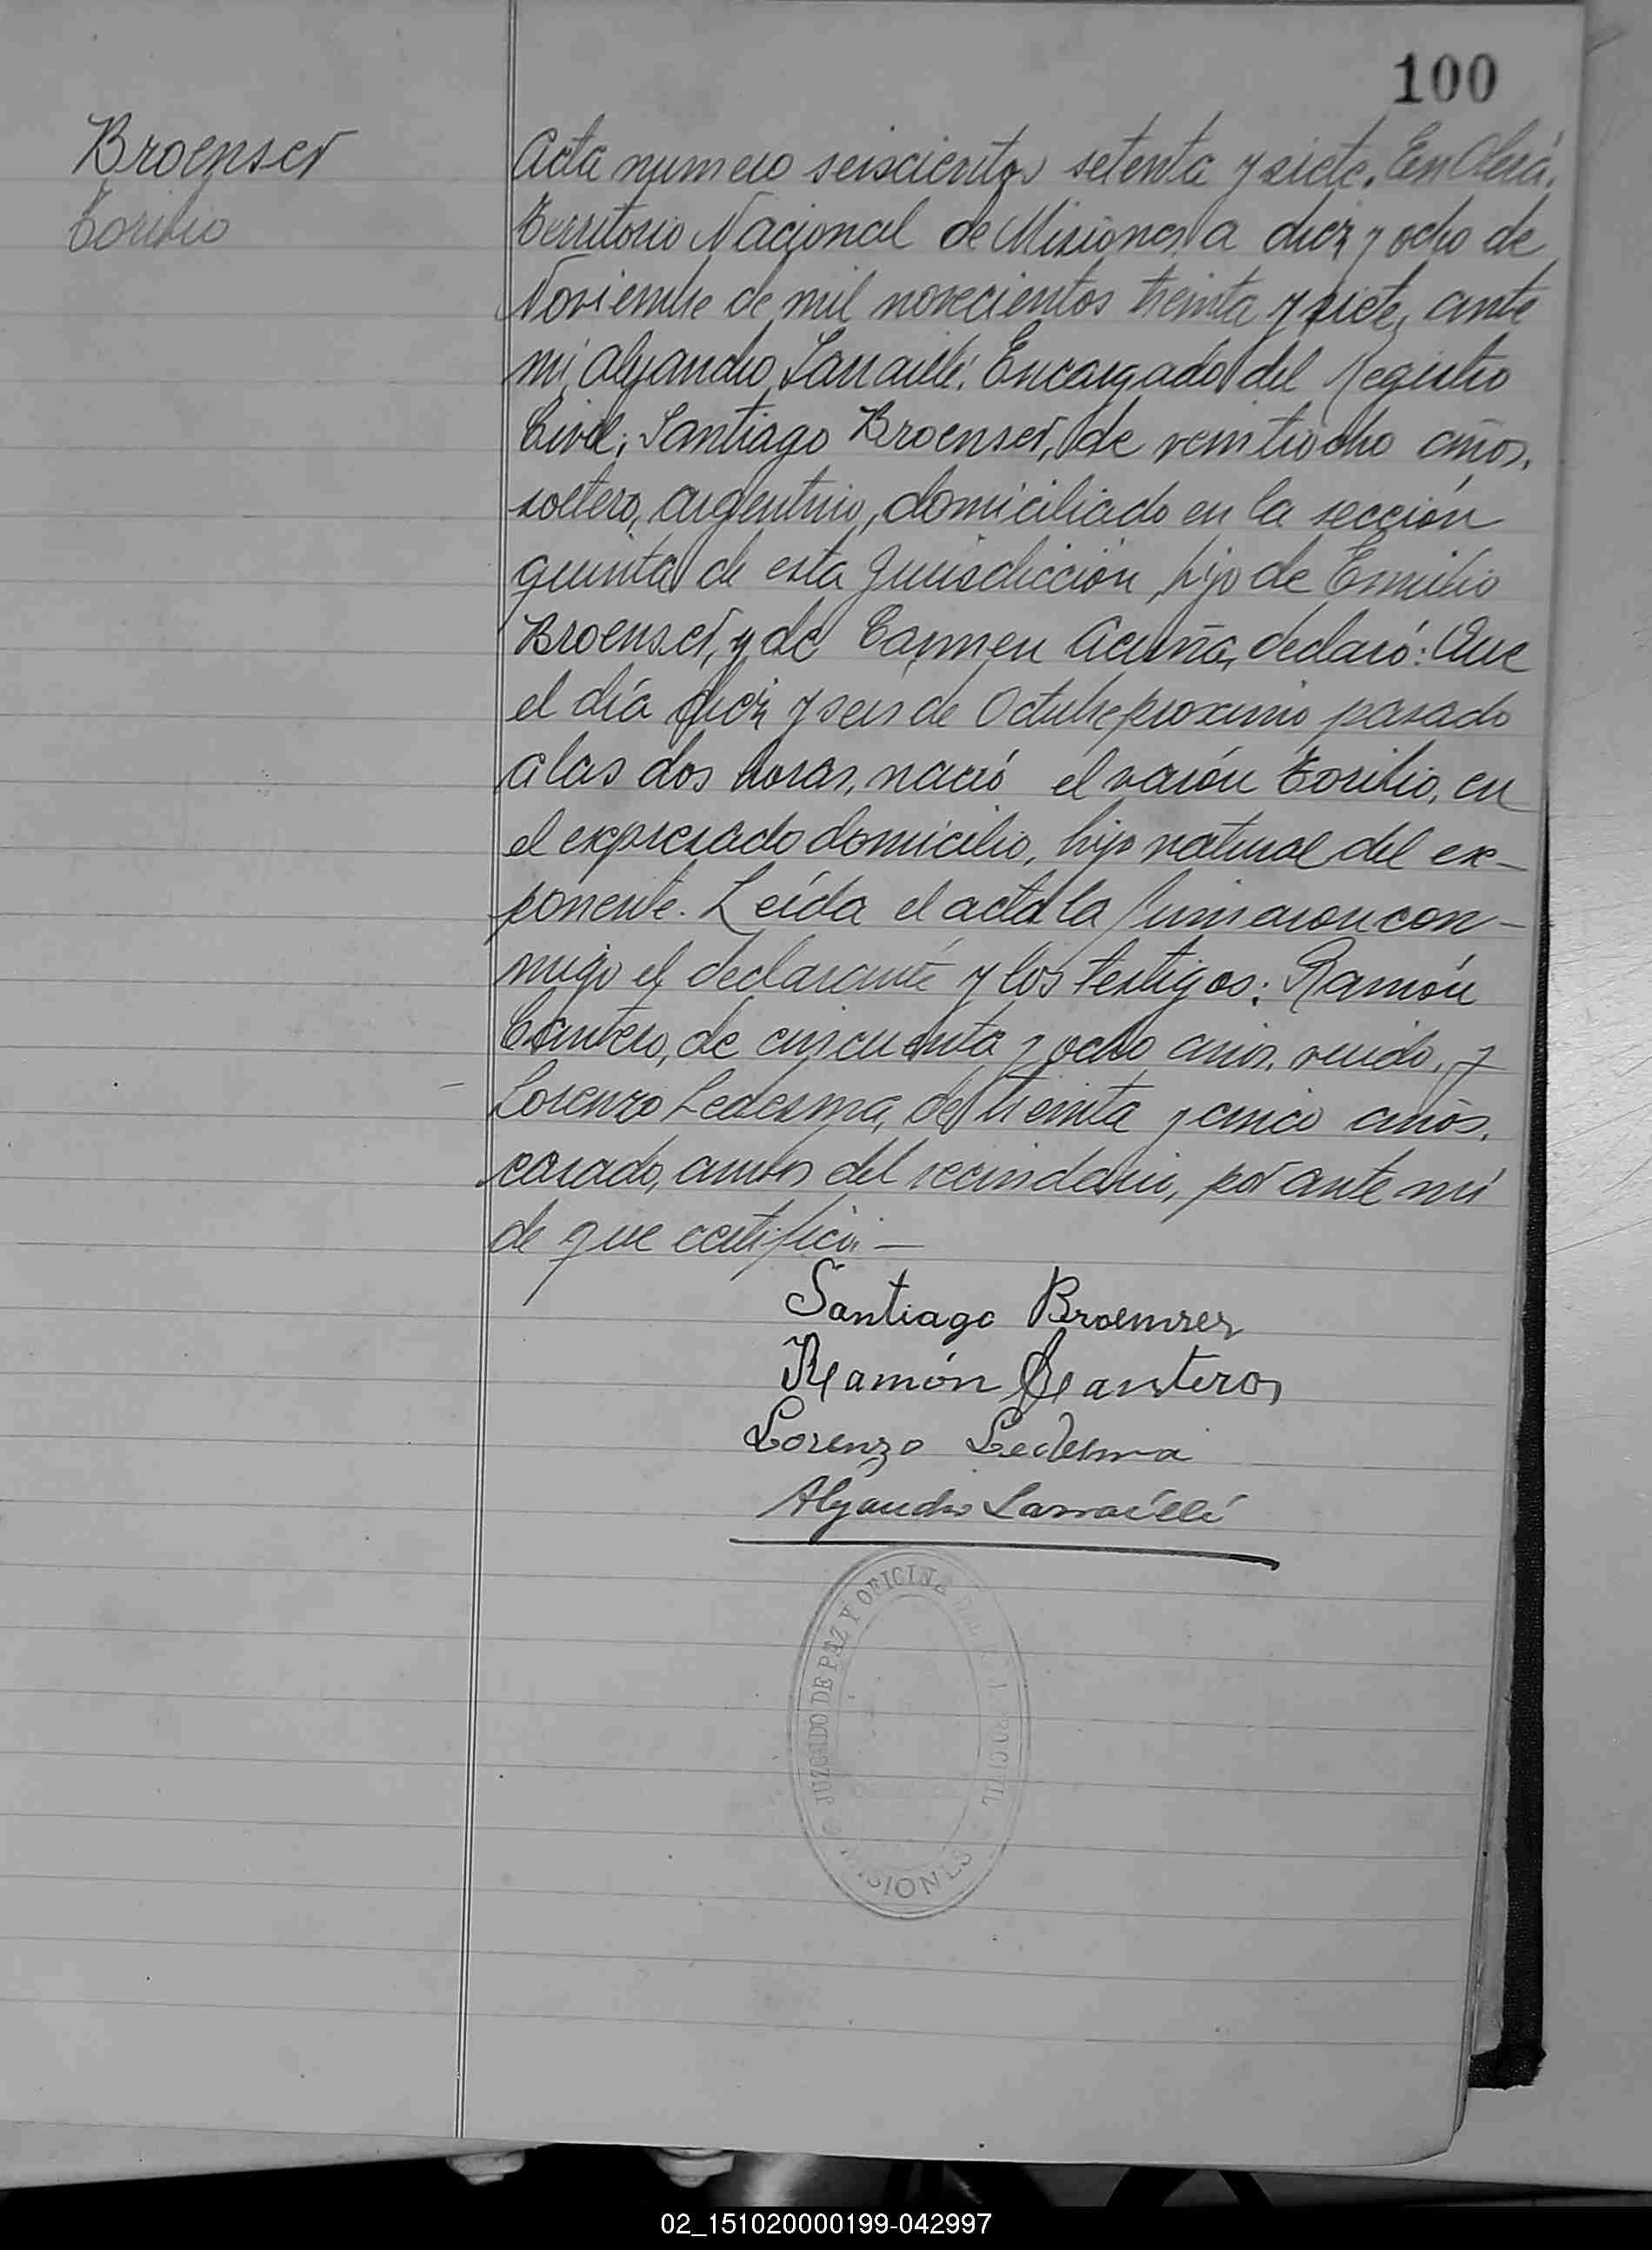 100
Broenser
Toribio
Acta numero seiscientos setenta y siete. En Oberá,
Territorio Nacional de Misiones, a diez y ocho de
Noviembre de mil novecientos treinta y siete, ante
mi, Alejandro Larraillé, Encargado del Registro
Civil; Santiago Broenser, de veintiocho años,
soltero, argentino, domiciliado en la sección
quinta de esta Jurisdicción, hijo de Emilio
Broenser, y de Carmen Acuña, declaró: Que
el día diez y seis de Octubre proximo pasado
a las dos horas, nació el varón Toribio, en
el expresado domicilio, hijo natural del ex-
ponente. Leída el acta la firmaron con-
migo el declarante y los testigos: Ramón
Cantero, de cincuenta y ocho años, viudo, y
Lorenzo Ledesma, de treinta y cinco años,
casado, ambos del vecindario, por ante mi
de que certifico.—
Santiago Broenser
Ramón Canteros
Lorenzo Ledesma
Alejandro Larraillé
JUZGADO DE PAZ Y OFICINA DEL CIVIL
MISIONES
02_151020000199-042997